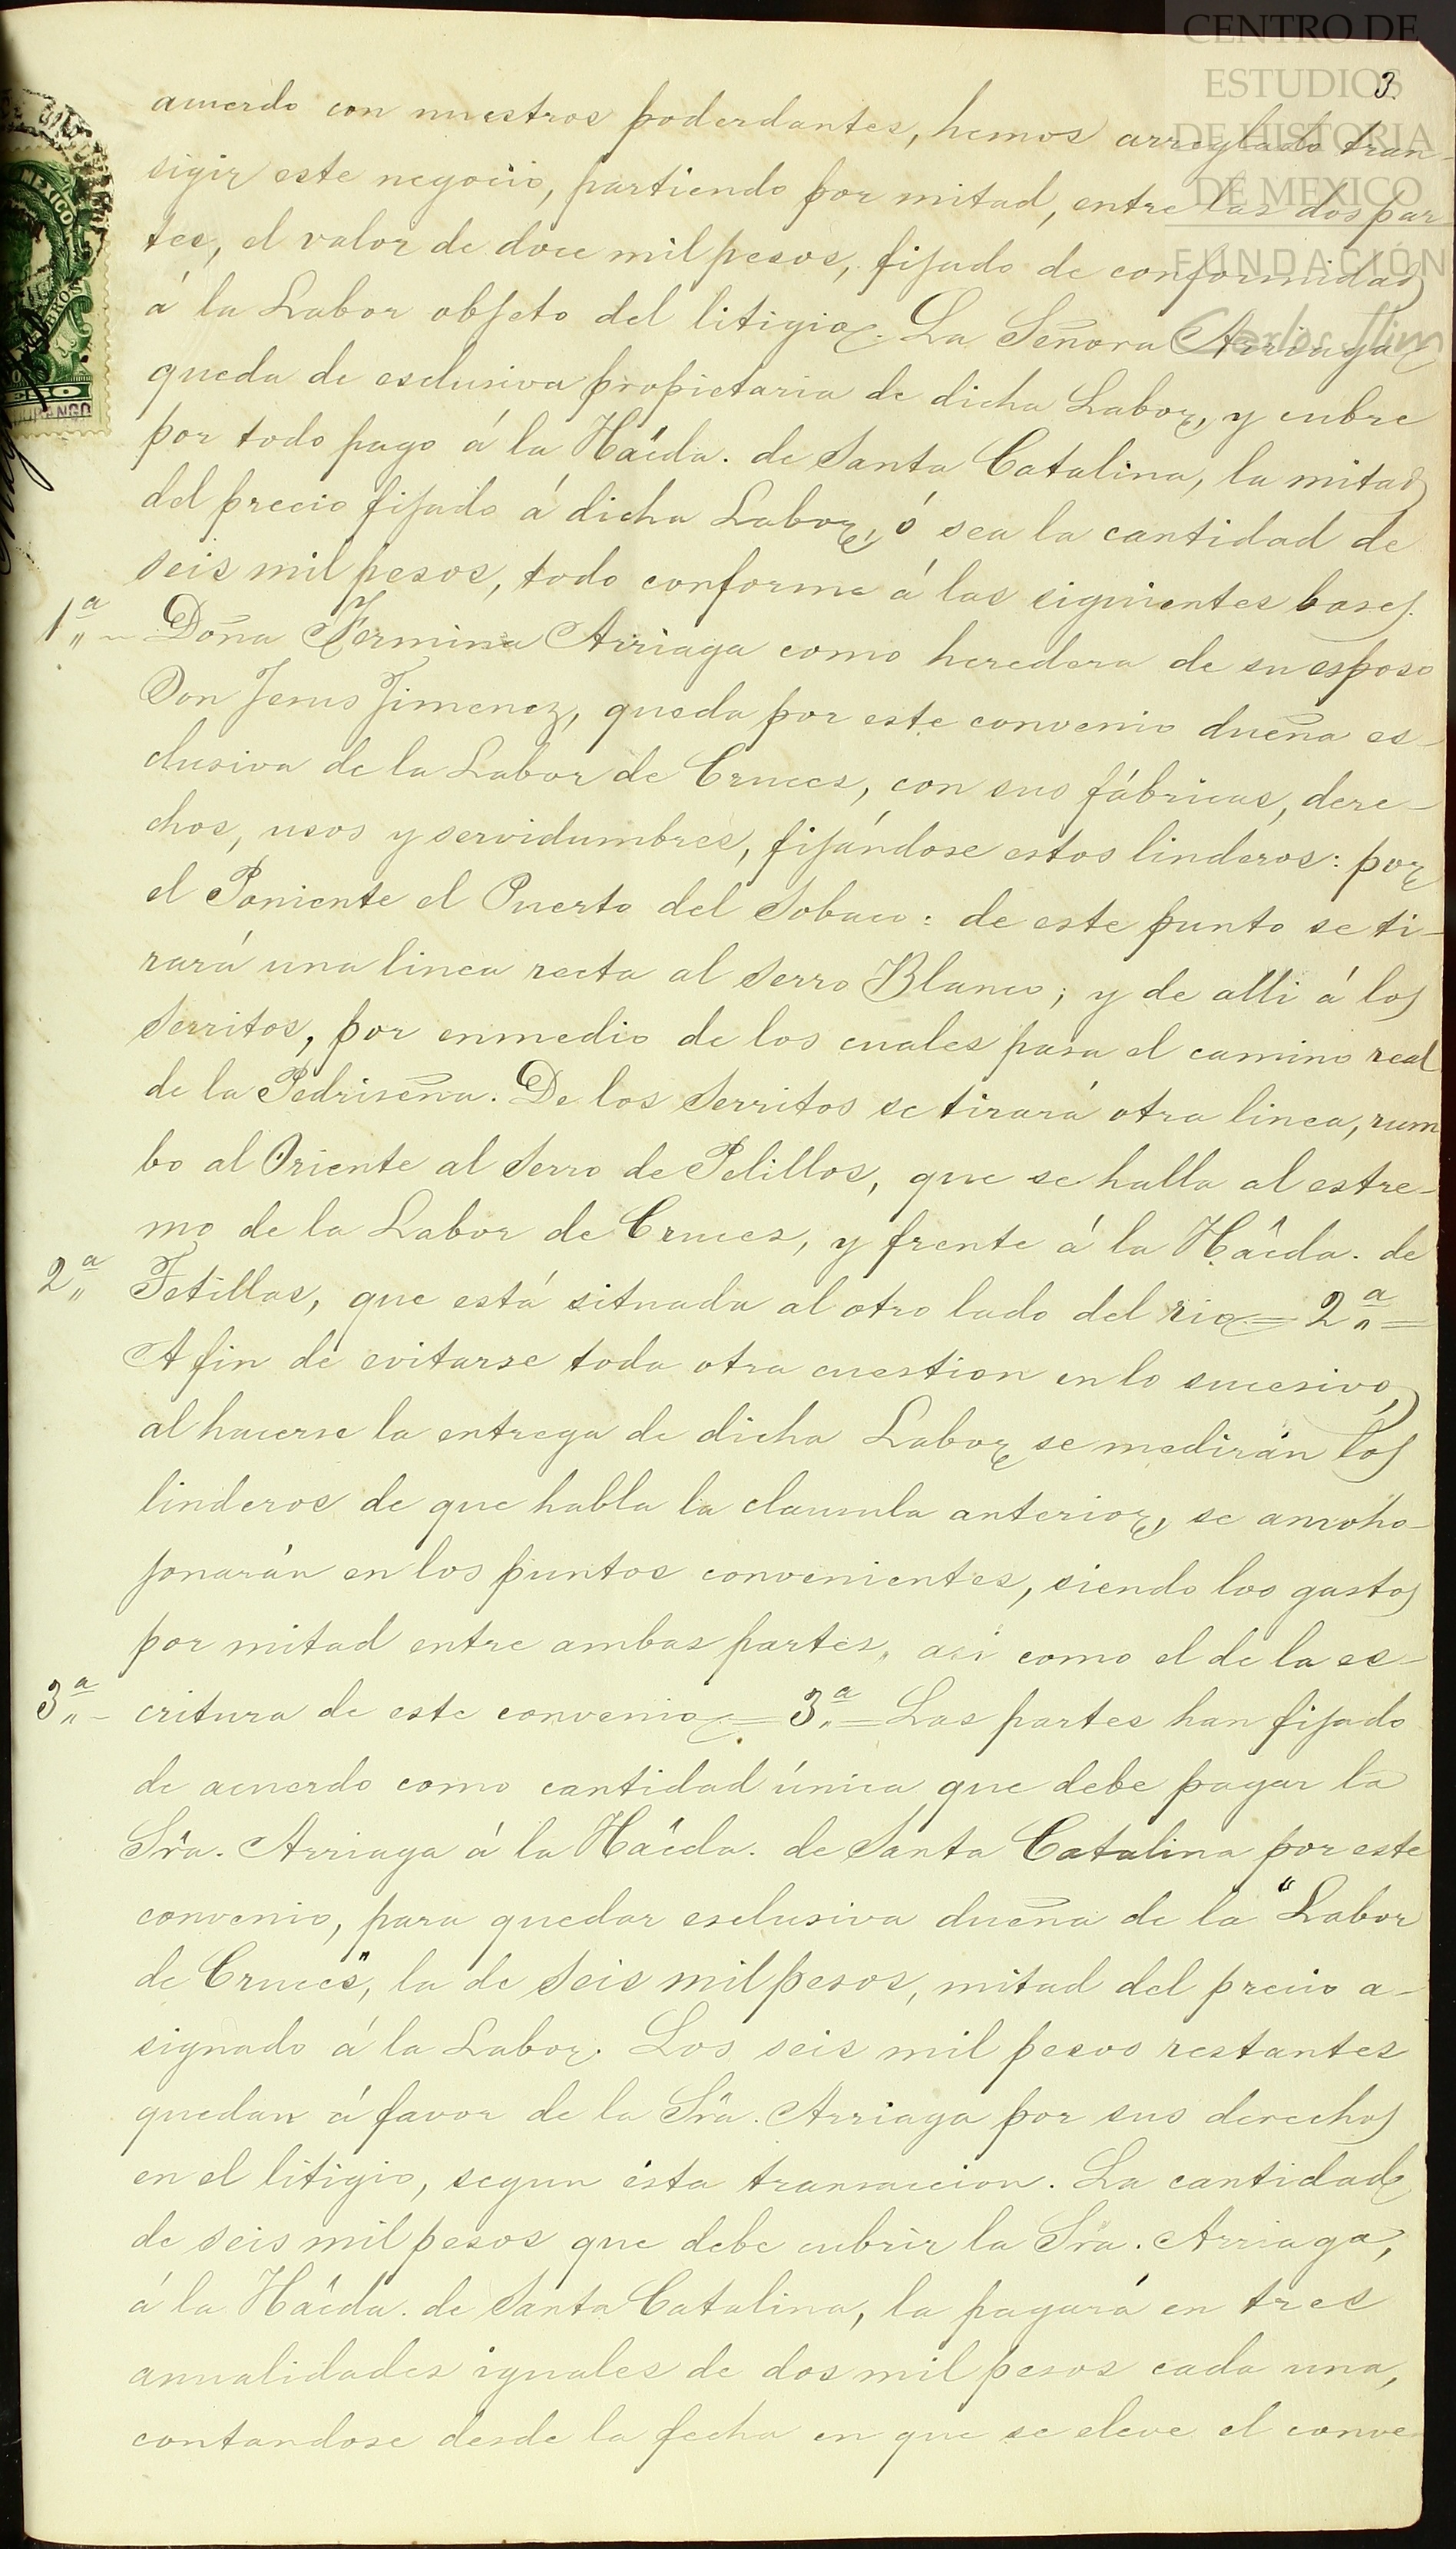 CENTRO DE
ESTUDIOS
DE HISTORIA
DE MEXICO
FUNDACIÓN
Carlos Slim
3.
MEXICO
DURANGO
acuerdo con nuestros poderdantes, hemos arreglado tran-
sigir este negocio, partiendo por mitad, entre las dos par
tes, el valor de doce mil pesos, fijado de conformidad
á la Labor objeto del litigio. La Señora Arriaga
queda de esclusiva propietaria de dicha Labor, y cubre
por todo pago á la Hacda. de Santa Catalina, la mitad
del precio fijado á dicha Labor, ó sea la cantidad de
seis mil pesos, todo conforme á las siguientes bases.
1ª Doña Fermina Arriaga como heredera de su esposo
Don Jesus Jimenez, queda por este convenio dueña es-
clusiva de la Labor de Cruces, con sus fábricas, dere-
chos, usos y servidumbres, fijándose estos linderos: por
el Poniente el Puerto del Sobaco: de este punto se ti-
rará una linea recta al Serro Blanco; y de alli á los
Serritos, por enmedio de los cuales pasa el camino real
de la Pedriseña. De los Serritos se tirará otra linea, rum
bo al Oriente al Serro de Pelillos, que se halla al estre-
mo de la Labor de Cruces, y frente á la Hacda. de
2ª Tetillas, que está situada al otro lado del rio = 2ª =
A fin de evitarse toda otra cuestion en lo sucesivo,
al hacerse la entrega de dicha Labor se medirán los
linderos de que habla la clausula anterior, se amoho-
jonarán en los puntos convenientes, siendo los gastos
por mitad entre ambas partes, asi como el de la es-
3ª - critura de este convenio = 3ª = Las partes han fijado
de acuerdo como cantidad única que debe pagar la
Sra. Arriaga á la Hacda. de Santa Catalina por este
convenio, para quedar esclusiva dueña de la "Labor
de Cruces", la de seis mil pesos, mitad del precio a-
signado á la Labor. Los seis mil pesos restantes
quedan á favor de la Sra. Arriaga por sus derechos
en el litigio, segun ésta transaccion. La cantidad
de seis mil pesos que debe cubrir la Sra. Arriaga,
á la Hacda. de Santa Catalina, la pagará en tres
anualidades iguales de dos mil pesos cada una,
contandose desde la fecha en que se eleve el conve